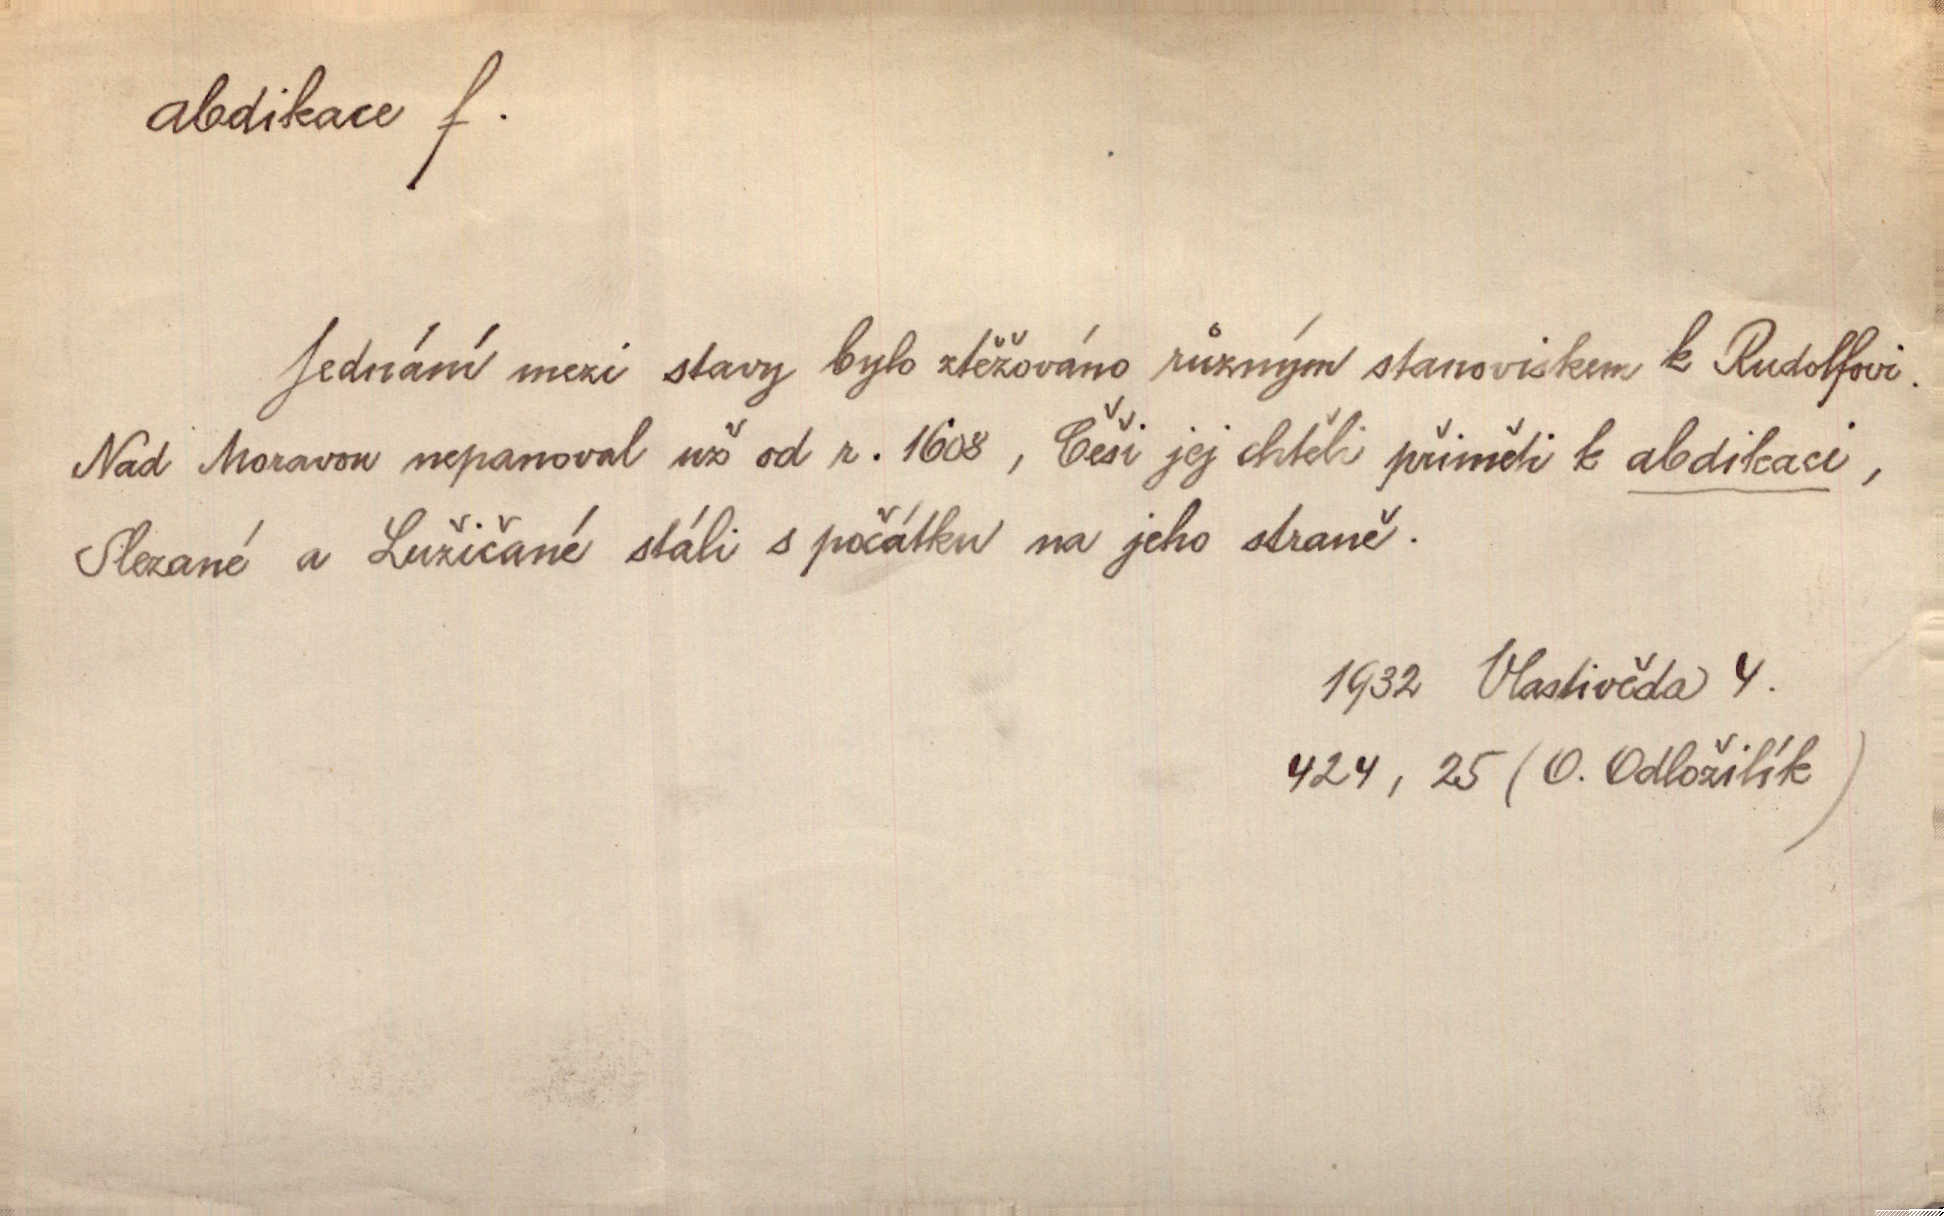 abdikace f.
Jednání mezi stavy bylo ztěžováno různým stanoviskem k Rudolfovi.
Nad Moravou nepanoval už od r. 1608, Češi jej chtěli přiměti k abdikaci,
Slezané a Lužičané stáli s počátku na jeho straně.
1932 Vlastivěda 4.
424, 25 (O. Odložilík)